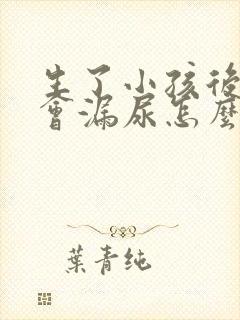 生了小孩後
會漏尿怎麼
葉青純